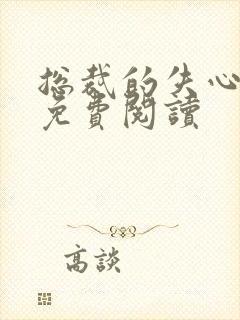 总裁的失心
免費閱讀
高談